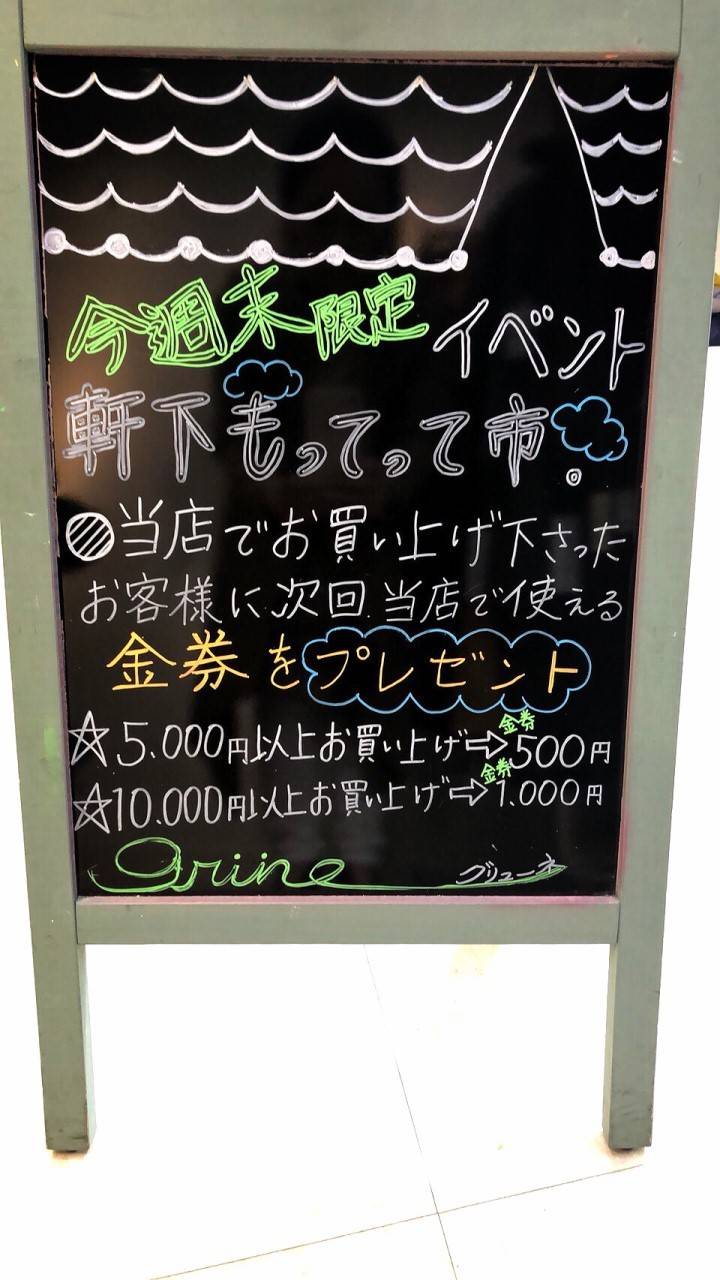 今週末限定イベント
軒下もってって市。
当店でお買い上げ下さった
お客様に次回当店で使える
金券をプレゼント
☆5.000円以上お買い上げ⇨金券500円
☆10.000円以上お買い上げ⇨金券1.000円
Grüne グリューネ